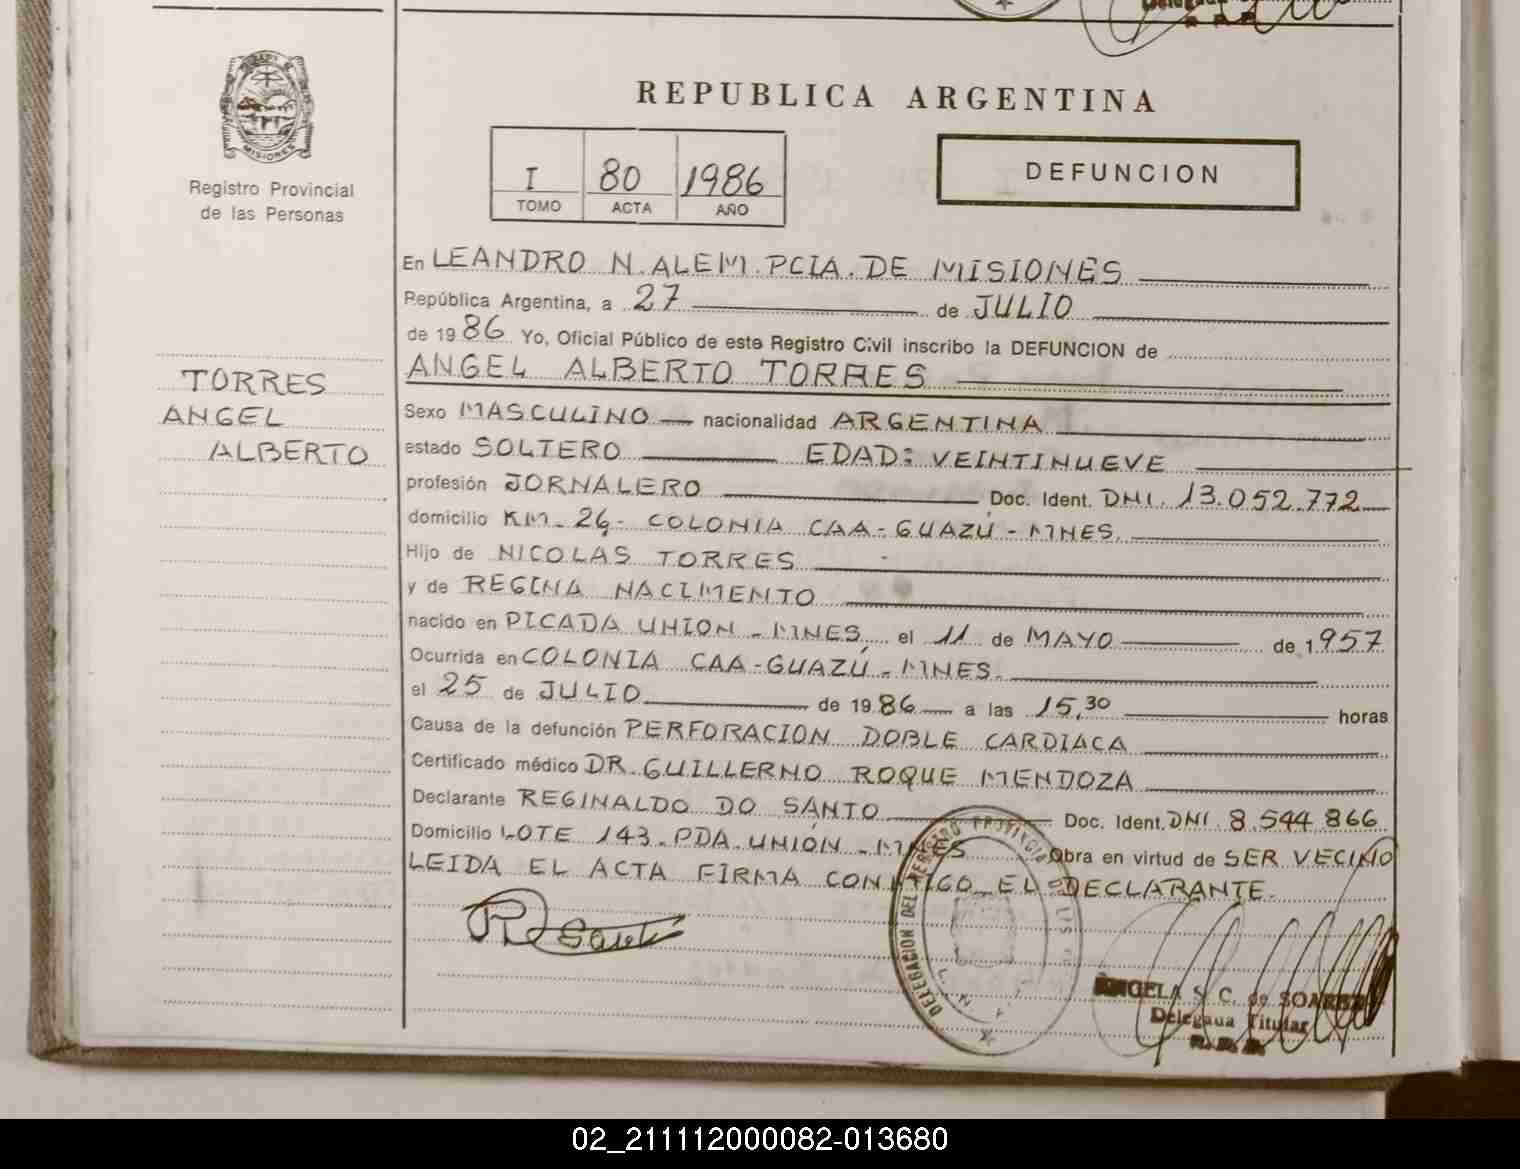 REPUBLICA ARGENTINA
MISIONES
Registro Provincial
de las Personas
I 80 1986
TOMO ACTA AÑO
DEFUNCION
En LEANDRO N. ALEM. PCIA. DE MISIONES
República Argentina, a 27 de JULIO
de 1986 Yo, Oficial Público de este Registro Civil inscribo la DEFUNCION de
ANGEL ALBERTO TORRES
TORRES
ANGEL
ALBERTO
Sexo MASCULINO nacionalidad ARGENTINA
estado SOLTERO EDAD: VEINTINUEVE
profesión JORNALERO Doc. Ident. DNI. 13.052.772
domicilio KM. 26- COLONIA CAA-GUAZÚ - MNES.
Hijo de NICOLAS TORRES
y de REGINA NACIMENTO
nacido en PICADA UNION - MNES el 11 de MAYO de 1957
Ocurrida en COLONIA CAA-GUAZÚ - MNES.
el 25 de JULIO de 1986 a las 15,30 horas
Causa de la defunción PERFORACION DOBLE CARDIACA
Certificado médico DR. GUILLERMO ROQUE MENDOZA
Declarante REGINALDO DO SANTO Doc. Ident. DNI 8.544.866
Domicilio LOTE 143. PDA. UNIÓN - MNES Obra en virtud de SER VECINO
LEIDA EL ACTA FIRMA CONMIGO EL DECLARANTE.
DELEGACION DEL REGISTRO PROVINCIAL DE LAS
L. N. A.
ANGELA S. C. de SOAREZ
Delegada Titular
02_211112000082-013680